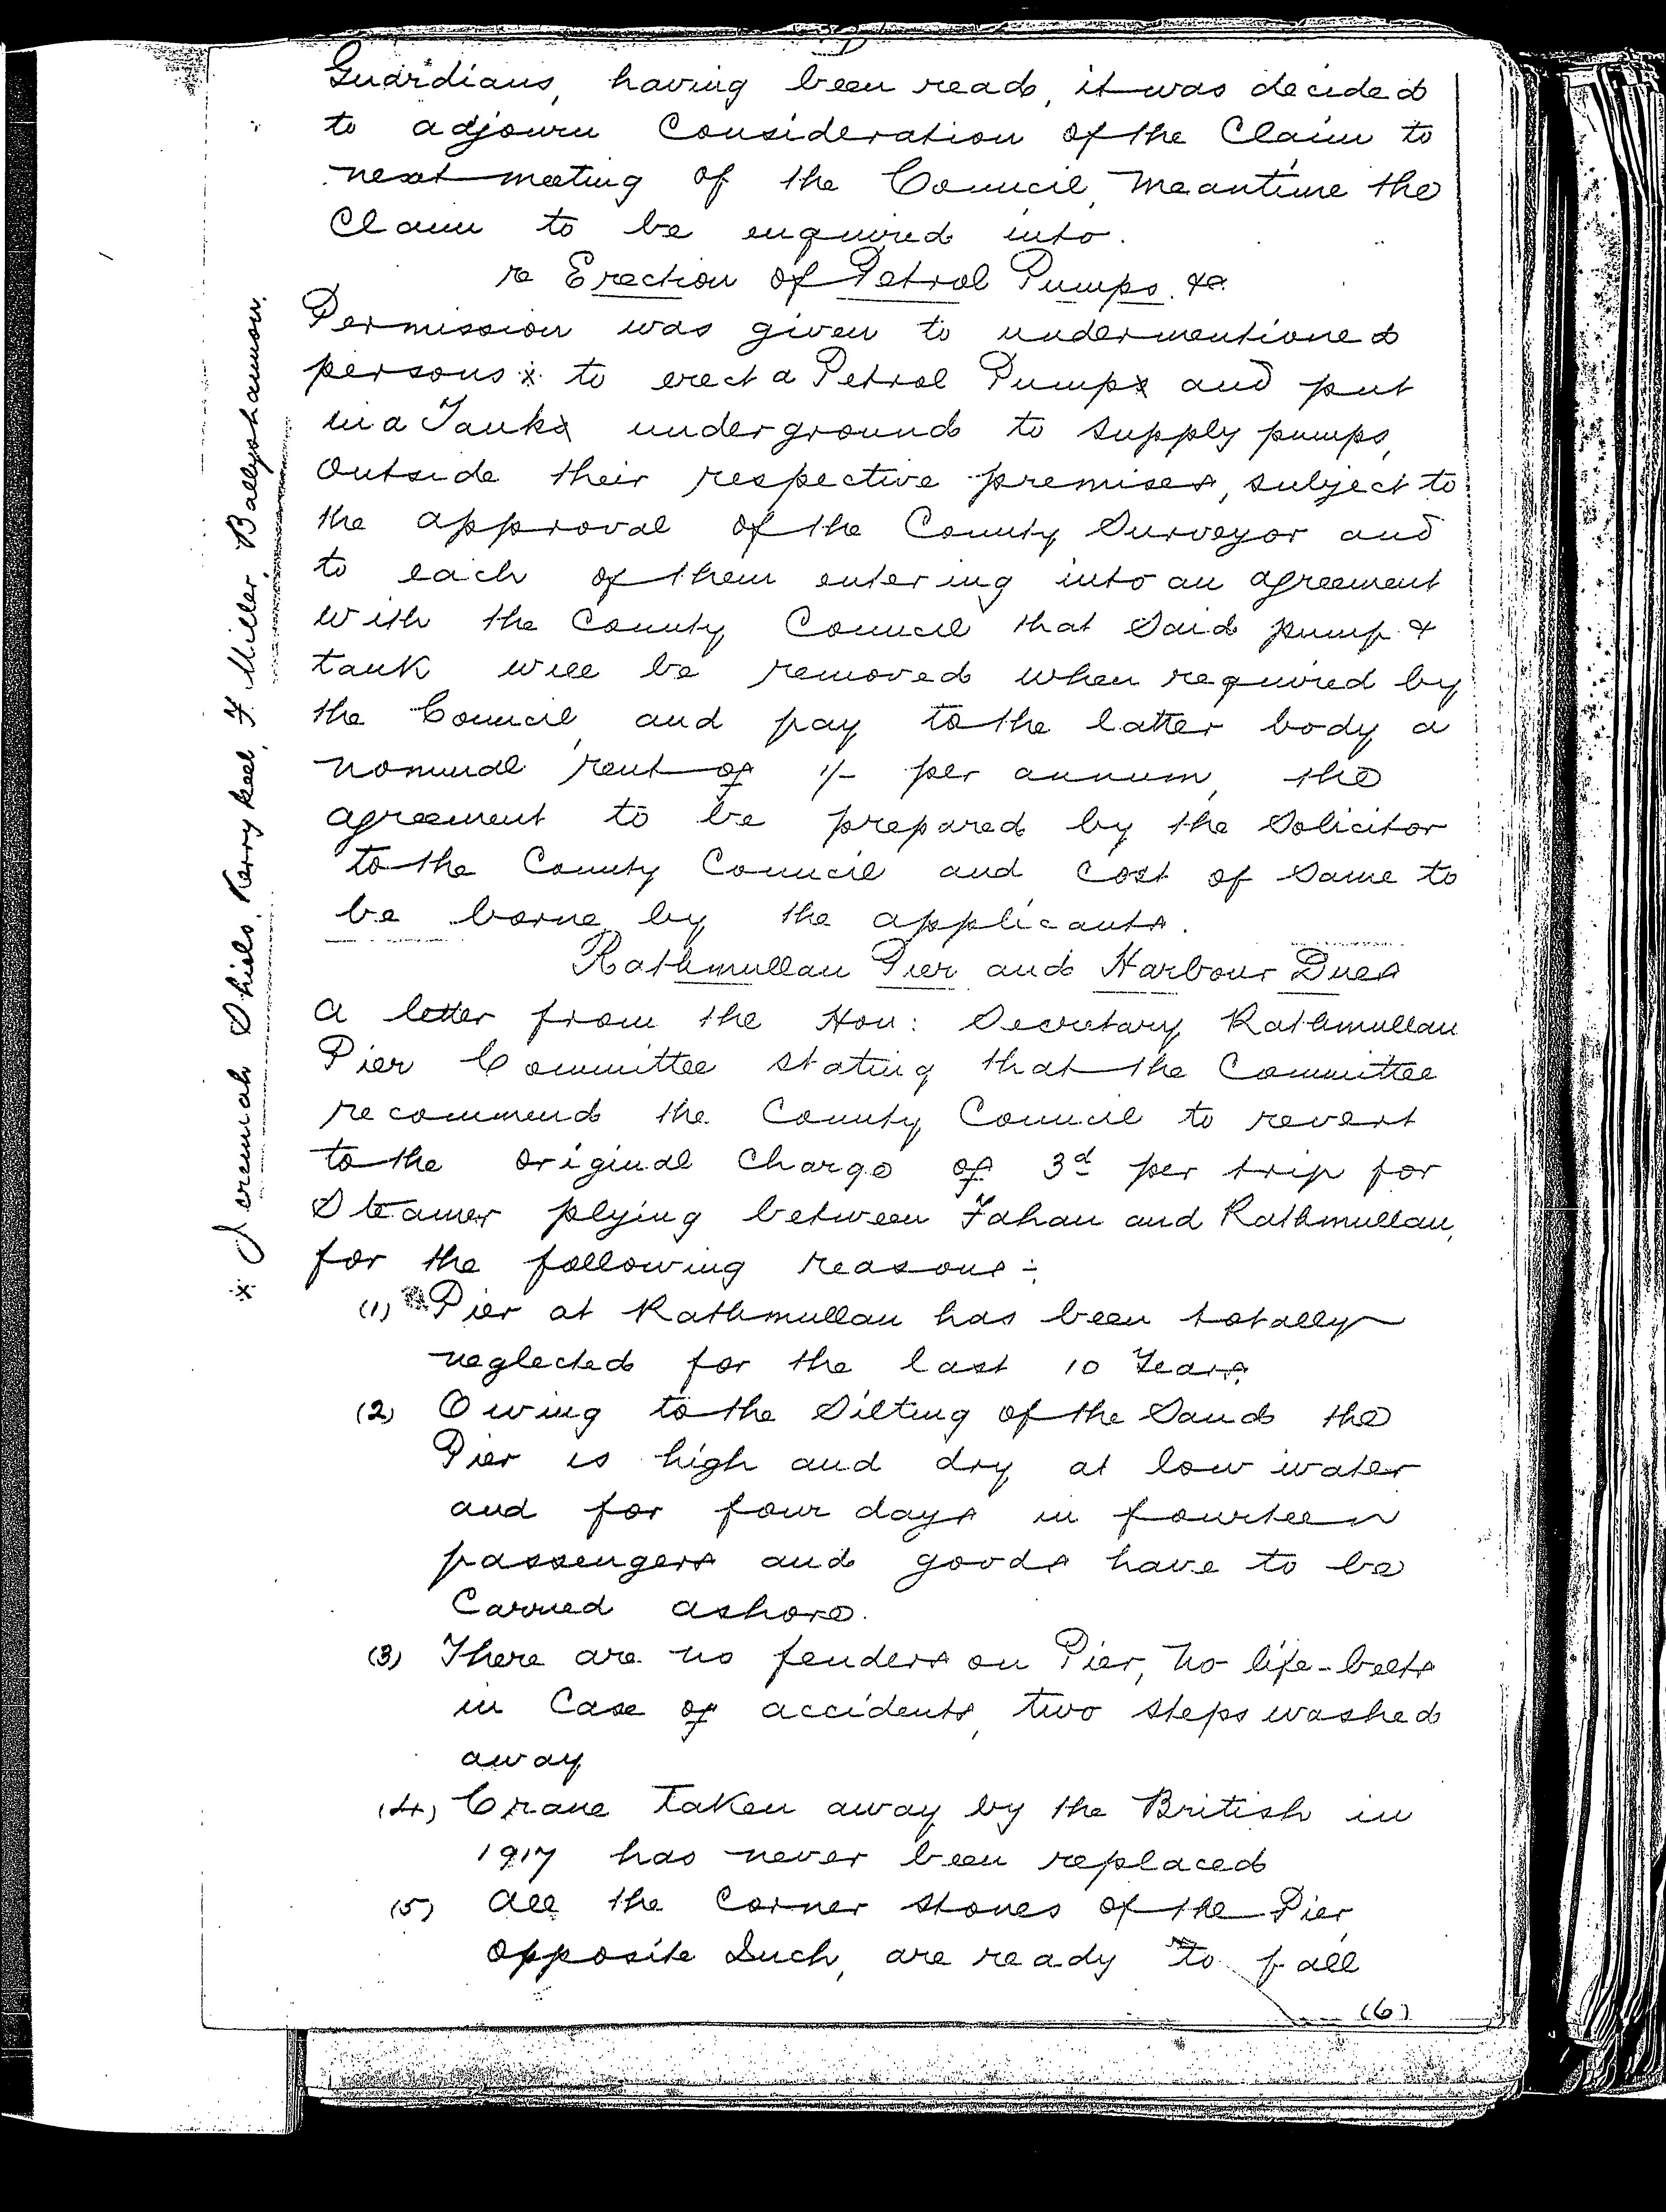 Guardians, having been read, it was decided
to adjourn Consideration of the Claim to
next meeting of the Council, meantime the
Claim to be enquired into.
re Erection of Petrol Pumps. &c.
Permission was given to undermentioned
persons x to erect a Petrol Pump and put
in a Tank underground to supply pumps,
outside their respective premises, subject to
the approval of the County Surveyor and
to each of them entering into an agreement
with the County Council that said pump &
tank will be removed when required by
the Council, and pay to the latter body a
nominal rent of 1/- per annum, the
agreement to be prepared by the Solicitor
to the County Council and cost of same to
be borne by the applicants.
Rathmullan Pier and Harbour Dues
A letter from the Hon: Secretary Rathmullan
Pier Committee stating that the Committee
recommend the County Council to revert
to the original Charge of 3d per trip for
Steamer plying between Fahan and Rathmullan,
for the following reasons:-
(1) Pier at Rathmullan has been totally
neglected for the last 10 Years
(2) Owing to the Silting of the Sand the
Pier is high and dry at low water
and for four days in fourteen
passengers and goods have to be
Carried ashore.
(3) There are no fenders on Pier, no life-belts
in Case of accidents, two steps washed
away
(4) Crane taken away by the British in
1917 has never been replaced
(5) All the Corner stones of the Pier
opposite Such, are ready to fall
(6)
x Jeremiah Shiels, Kerrykeel, F. Miller, Ballyshannon.